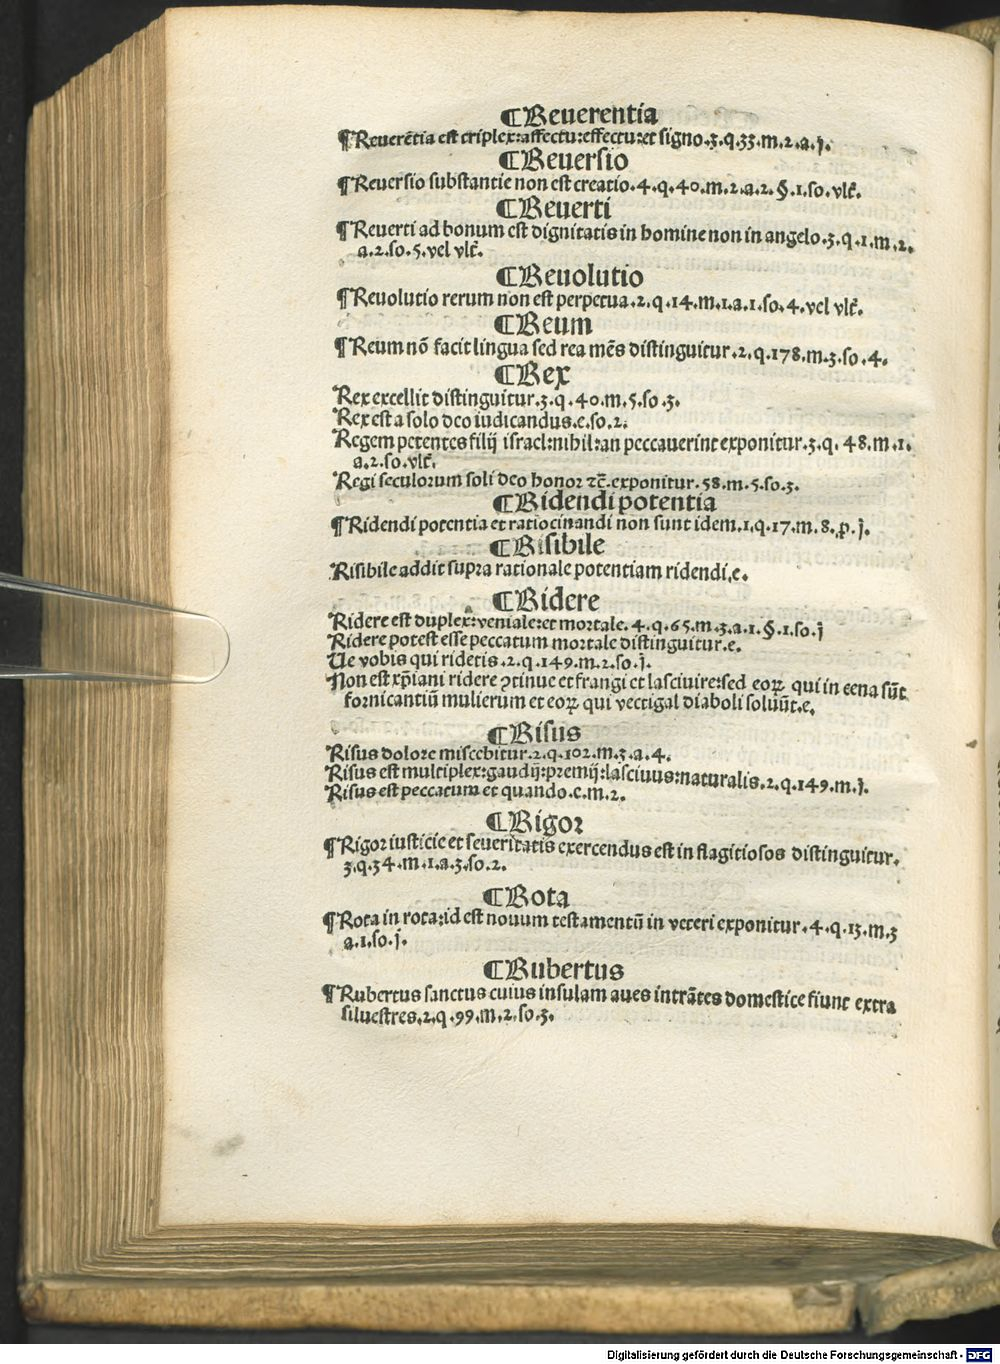 ⸿Reuerentia
¶Reuerētia est triplex:affectu:effectu:et signo.3.q.33.m.2.a.j.
⸿Reuersio
¶Reuersio substantie non est creatio.4.q.40.m.2.a.2.§.1.so.vlt̄.
⸿Reuerti
¶Reuerti ad bonum est dignitatis in homine non in angelo.3.q.1.m.2.
a.2.so.5.vel vlt̄.
⸿Reuolutio
¶Reuolutio rerum non est perpetua.2.q.14.m.1.a.1.so.4.vel vlt̄.
⸿Reum
¶Reum nō facit lingua sed rea mēs distinguitur.2.q.178.m.3.so.4.
⸿Rex
Rex excellit distinguitur.3.q.40.m.5.so.3.
Rex est a solo deo iudicandus.e.so.2.
Regem petentes filij israel:nihil:an peccauerint exponitur.3.q.48.m.1.
a.2.so.vlt̄.
Regi seculorum soli deo honor ⁊c̄.exponitur.58.m.5.so.3.
⸿Ridendi potentia
¶Ridendi potentia et ratiocinandi non sunt idem.1.q.17.m.8.p.j.
⸿Risibile
Risibile addit supra rationale potentiam ridendi.e.
⸿Ridere
Ridere est duplex:veniale:et mortale.4.q.65.m.3.a.1.§.1.so.j
Ridere potest esse peccatum mortale distinguitur.e.
Ue vobis qui ridetis.2.q.149.m.2.so.j.
Non est xp̄iani ridere ꝯtinue et frangi et lasciuire:sed eoꝝ qui in cena sūt
fornicantiū mulierum et eoꝝ qui vectigal diaboli soluūt.e.
⸿Risus
Risus dolore miscebitur.2.q.102.m.3.a.4.
Risus est multiplex:gaudij:premij:lasciuus:naturalis.2.q.149.m.j.
Risus est peccatum et quando.e.m.2.
⸿Rigor
¶Rigor iusticie et seueritatis exercendus est in flagitiosos distinguitur.
3.q.34.m.1.a.3.so.2.
⸿Rota
¶Rota in rota:id est nouum testamentū in veteri exponitur.4.q.13.m.3
a.1.so.j.
⸿Rubertus
¶Rubertus sanctus cuius insulam aues intrātes domestice fiunt extra
siluestres.2.q.99.m.2.so.3.
Digitalisierung gefördert durch die Deutsche Forschungsgemeinschaft - DFG